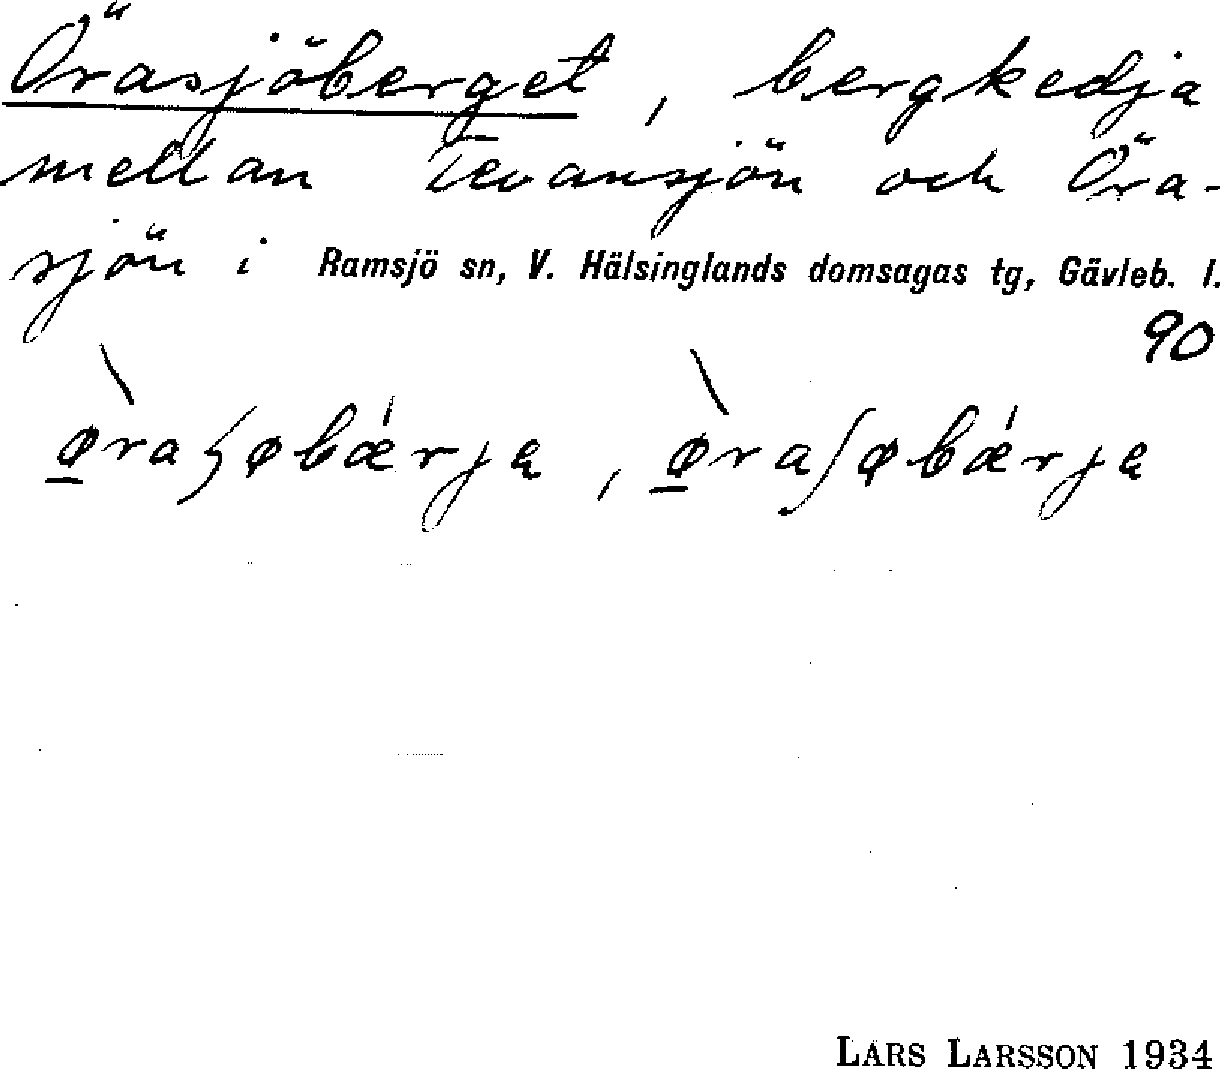 Örasjöberget, bergkedja
mellan Tevansjön och Öra-
sjön i Ramsjö sn, V. Hälsinglands domsagas tg, Gävleb. l.
90
LARS LARSSON 1934